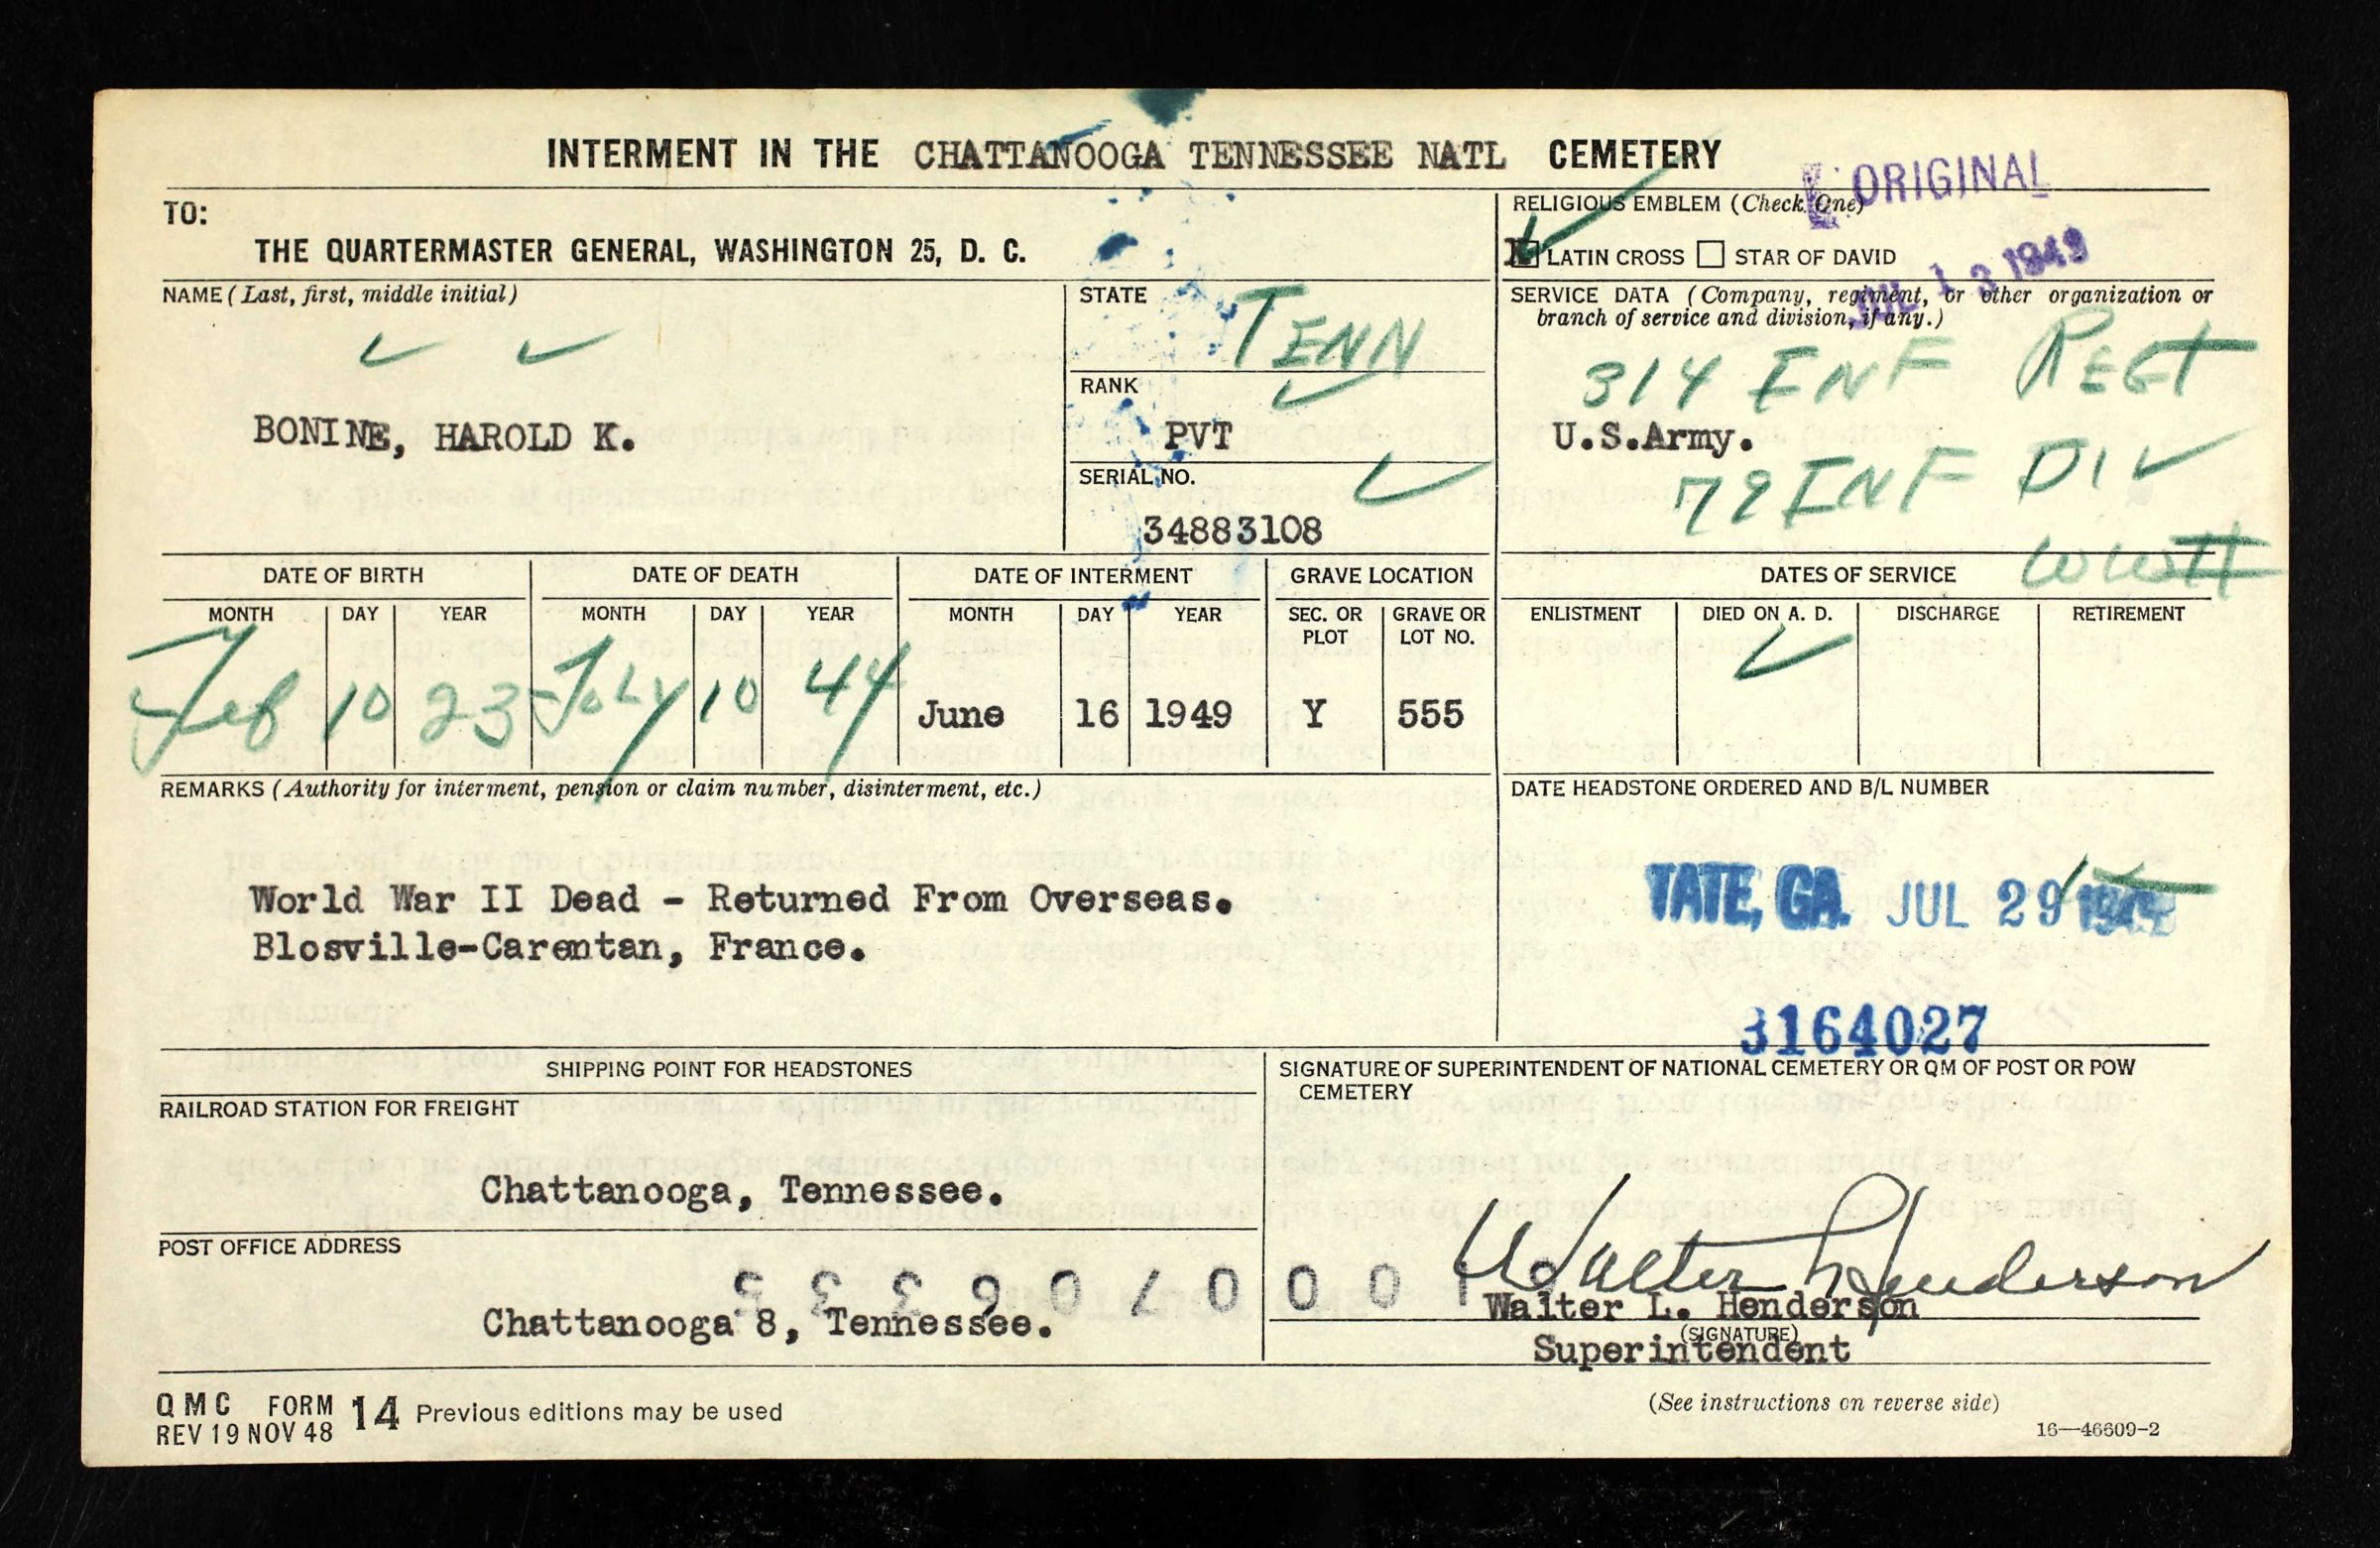 INTERMENT IN THE CHATTANOOGA TENNESSEE NATL CEMETERY
ORIGINAL
TO:
THE QUARTERMASTER GENERAL, WASHINGTON 25, D. C.
RELIGIOUS EMBLEM (Check One)
LATIN CROSS STAR OF DAVID
JUL 13 1949
NAME (Last, first, middle initial)
BONINE, HAROLD K.
STATE
TENN
RANK
PVT
SERIAL NO.
34883108
SERVICE DATA (Company, regiment, or other organization or
branch of service and division, if any.)
314 INF REGT
U.S.Army.
79 INF DIV
WWII
DATE OF BIRTH DATE OF DEATH DATE OF INTERMENT GRAVE LOCATION DATES OF SERVICE
MONTH DAY YEAR MONTH DAY YEAR MONTH DAY YEAR SEC. OR PLOT GRAVE OR LOT NO. ENLISTMENT DIED ON A. D. DISCHARGE RETIREMENT
Feb 10 23 July 10 44 June 16 1949 Y 555
REMARKS (Authority for interment, pension or claim number, disinterment, etc.)
World War II Dead - Returned From Overseas.
Blosville-Carentan, France.
DATE HEADSTONE ORDERED AND B/L NUMBER
TATE, GA. JUL 29
3164027
SHIPPING POINT FOR HEADSTONES
RAILROAD STATION FOR FREIGHT
Chattanooga, Tennessee.
POST OFFICE ADDRESS
Chattanooga 8, Tennessee.
SIGNATURE OF SUPERINTENDENT OF NATIONAL CEMETERY OR QM OF POST OR POW
CEMETERY
Walter L Henderson
Walter L. Henderson
(SIGNATURE)
Superintendent
QMC FORM 14 Previous editions may be used
REV 19 NOV 48
(See instructions on reverse side)
16—46609-2